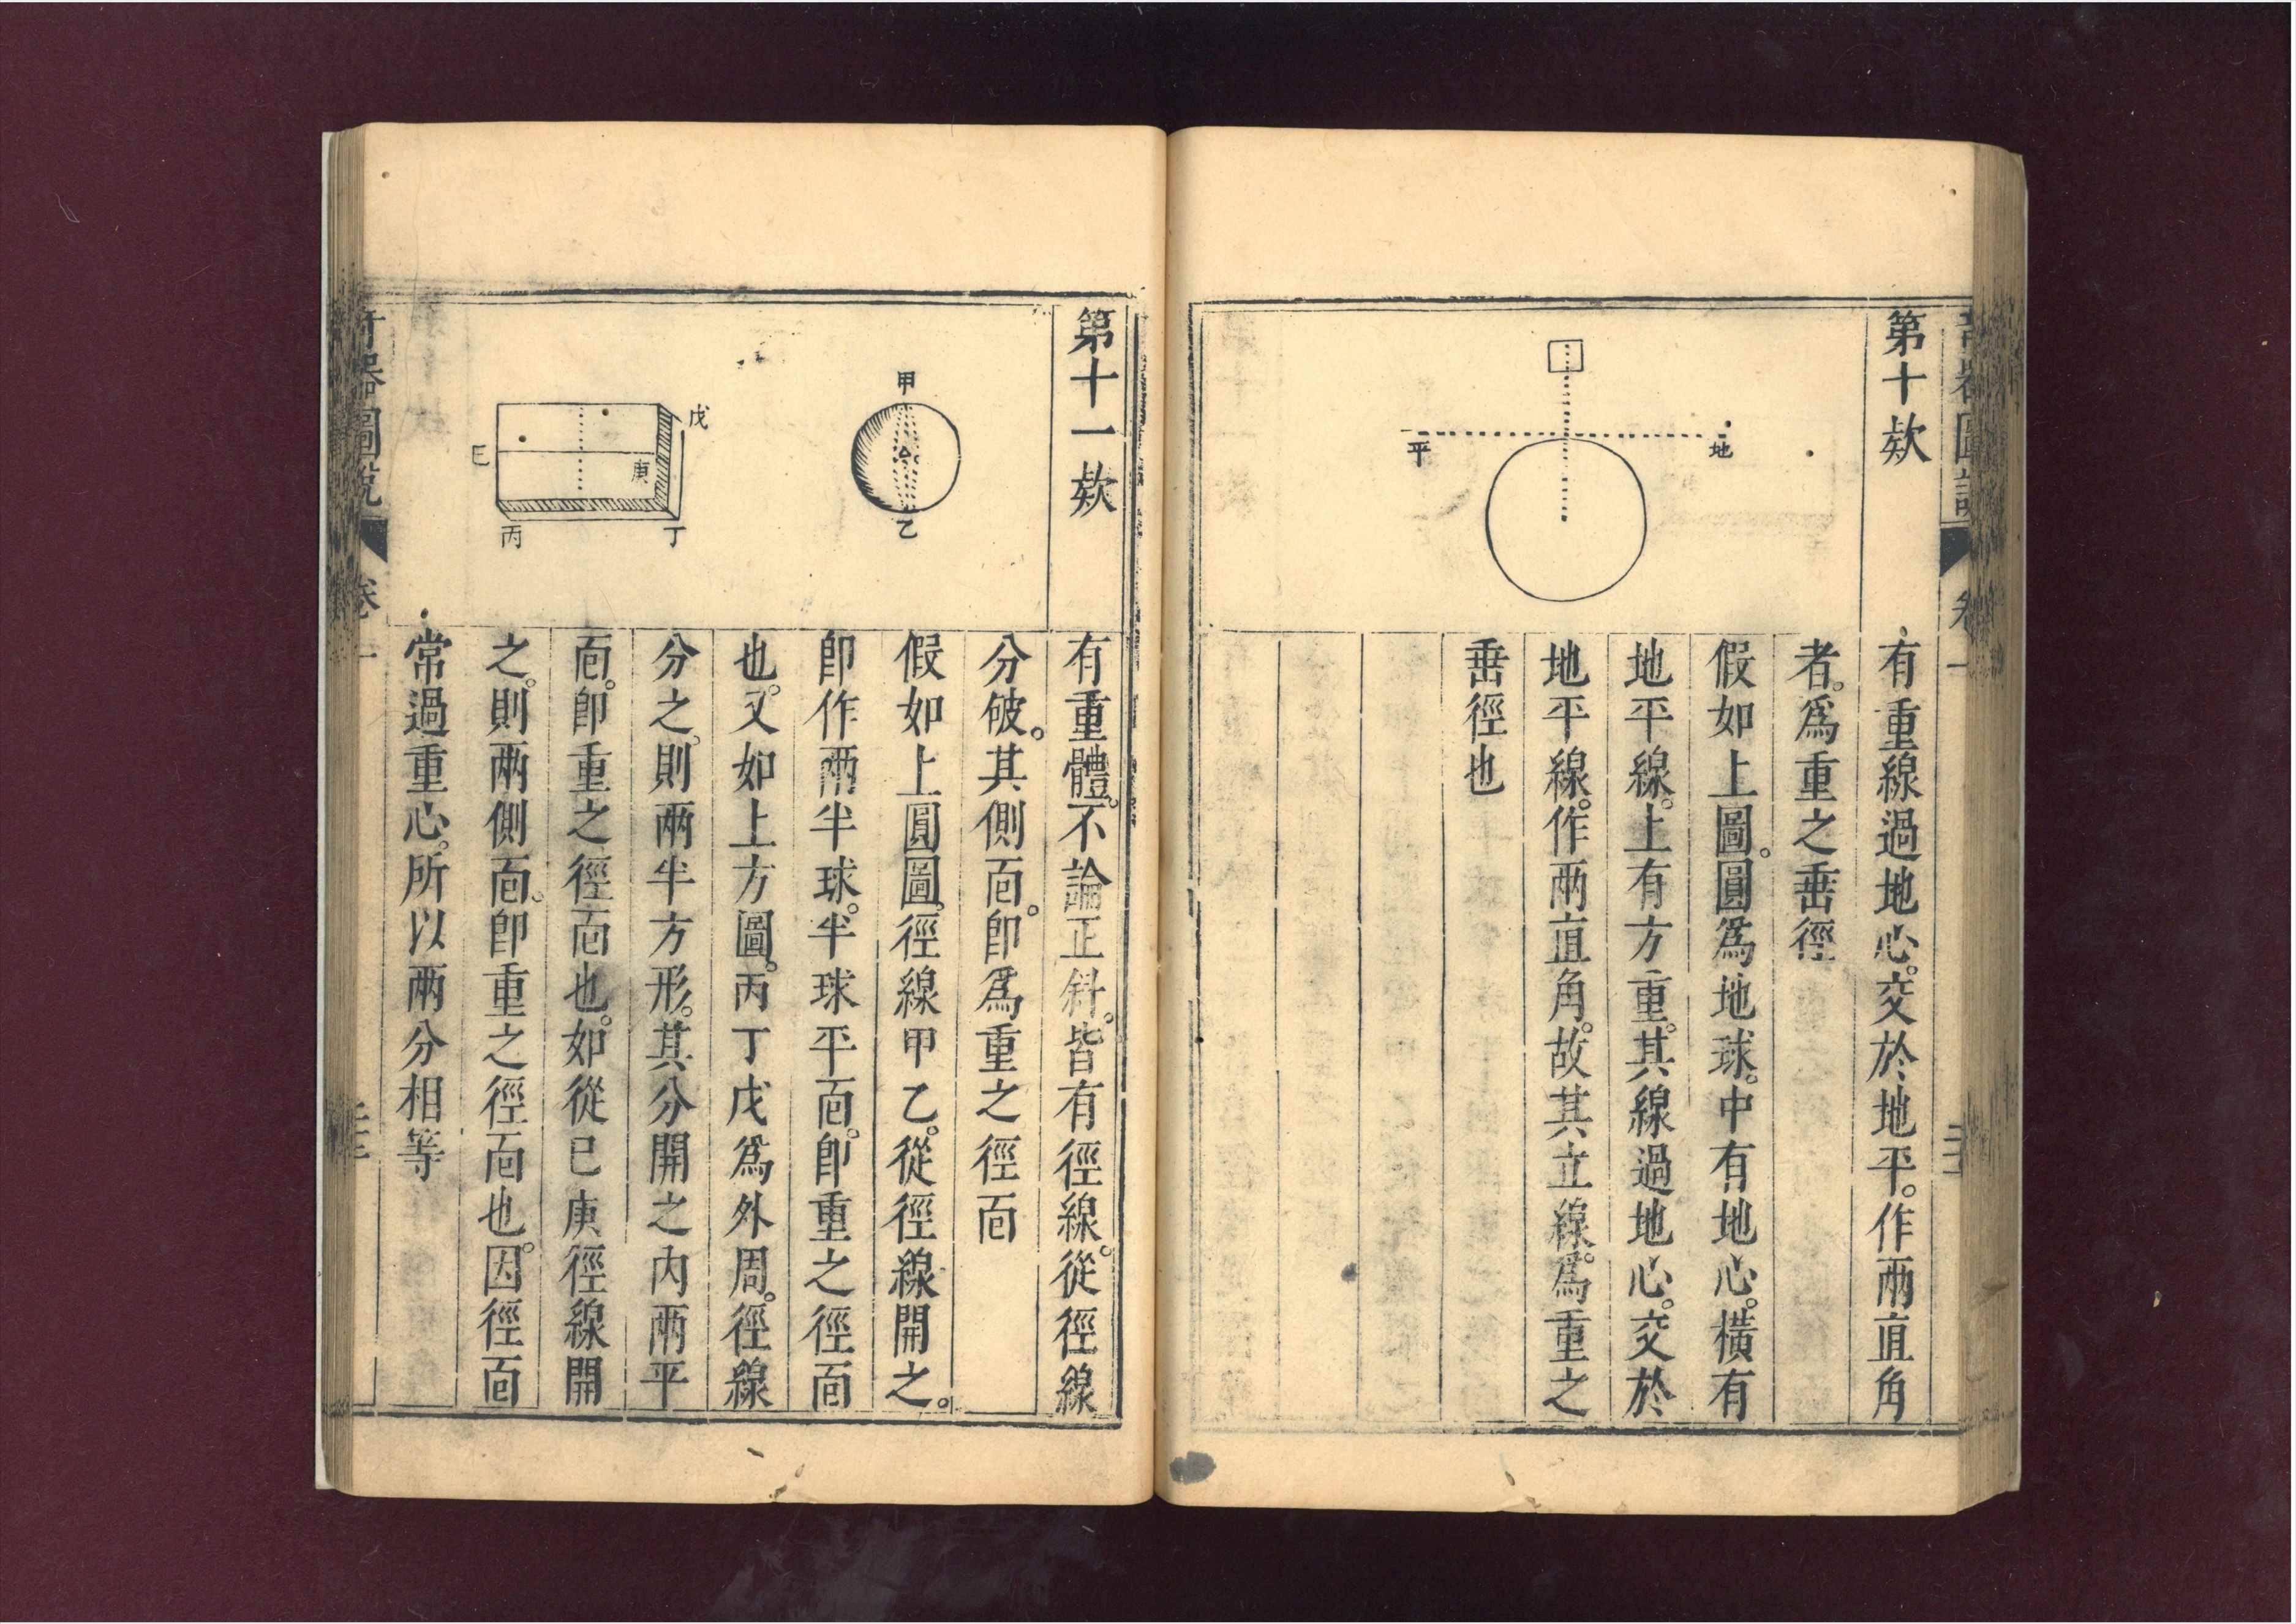 第十款
地
平
有重線過地心。交於地平。作兩直角
者。爲重之垂徑
假如上圖。圓爲地球。中有地心。橫有
地平線。上有方重。其線過地心。交於
地平線。作兩直角。故其立線。爲重之
垂徑也
第十一款
甲
乙
戊
己
庚
丙
丁
有重體。不論正斜。皆有徑線。從徑線
分破。其側面。卽爲重之徑面
假如上圓圖。徑線甲乙。從徑線開之。
卽作兩半球。半球平面。卽重之徑面
也。又如上方圖。丙丁戊爲外周。徑線
分之。則兩半方形。其分開之內兩平
面。卽重之徑面也。如從巳庚徑線開
之。則兩側面。卽重之徑面也。因徑面
常過重心。所以兩分相等
奇器圖說 卷一